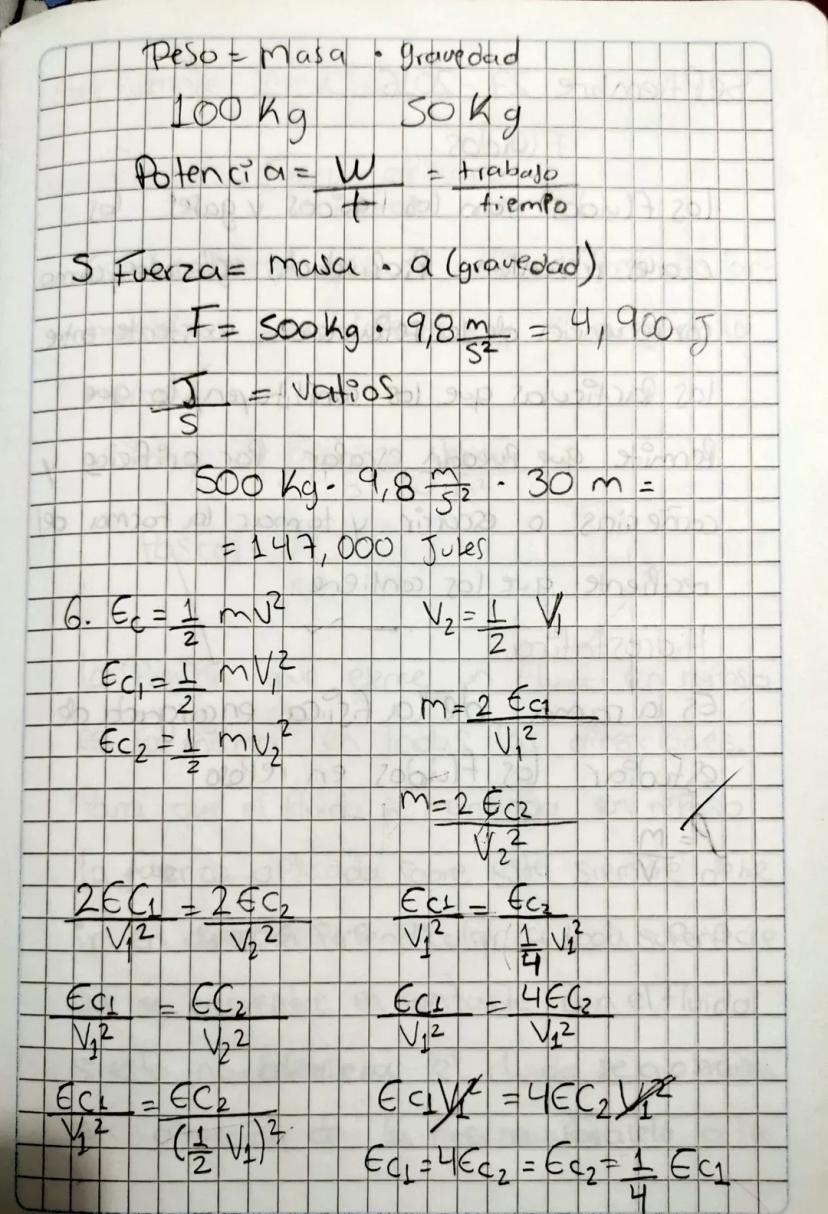 Peso = masa · gravedad
100 Kg 50 Kg
Potencia = W/t = trabajo/tiempo
5 Fuerza = masa · a (gravedad)
F = 500 Kg · 9,8 m/s² = 4,900 J
J/s = Vatios
500 Kg · 9,8 m/s² · 30 m =
= 147,000 Jules
6. Ec = 1/2 mv² V₂ = 1/2 V₁
Ec₁ = 1/2 mV₁²
m = 2 Ec₁/V₁²
Ec₂ = 1/2 mv₂²
m = 2 Ec₂/V₂²
2EC₁/V₁² = 2EC₂/V₂² Ec₁/V₁² = Ec₂/1/4 V₁²
Ec₁/V₁² = EC₂/V₂² Ec₁/V₁² = 4EC₂/V₁²
Ec₁/V₁² = EC₂/(1/2 V₁)² Ec₁V₁² = 4EC₂V₁²
Ec₁ = 4Ec₂ = Ec₂ = 1/4 Ec₁